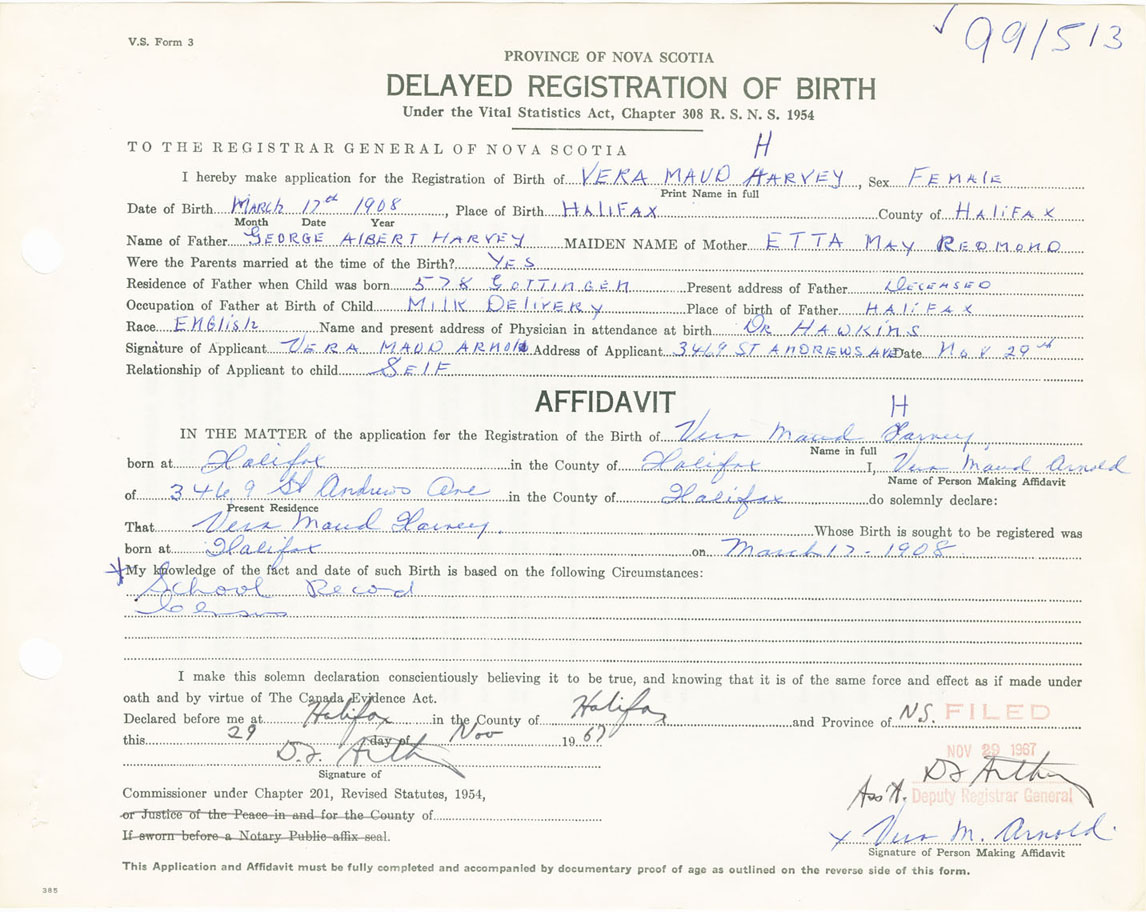 V.S. Form 3
99/513
PROVINCE OF NOVA SCOTIA
DELAYED REGISTRATION OF BIRTH
Under the Vital Statistics Act, Chapter 308 R. S. N. S. 1954
TO THE REGISTRAR GENERAL OF NOVA SCOTIA
H
I hereby make application for the Registration of Birth of VERA MAUD HARVEY, Sex FEMALE
Print Name in full
Date of Birth MARCH 17th 1908, Place of Birth HALIFAX County of HALIFAX
Month Date Year
Name of Father GEORGE ALBERT HARVEY MAIDEN NAME of Mother ETTA MAY REDMOND
Were the Parents married at the time of the Birth? YES
Residence of Father when Child was born 578 GOTTINGEN Present address of Father DECEASED
Occupation of Father at Birth of Child MILK DELIVERY Place of birth of Father HALIFAX
Race ENGlish Name and present address of Physician in attendance at birth DR HAWKINS
Signature of Applicant VERA MAUD ARNOLD Address of Applicant 3469 ST ANDREWS AVE Date Nov 29th
Relationship of Applicant to child SELF
AFFIDAVIT
H
IN THE MATTER of the application for the Registration of the Birth of Vera Maud Harvey,
Name in full
born at Halifax in the County of Halifax I, Vera Maud Arnold
Name of Person Making Affidavit
of 3469 St Andrews Ave in the County of Halifax do solemnly declare:
Present Residence
That Vera Maud Harvey Whose Birth is sought to be registered was
born at Halifax on March 17 - 1908
My knowledge of the fact and date of such Birth is based on the following Circumstances:
School Record
Census
I make this solemn declaration conscientiously believing it to be true, and knowing that it is of the same force and effect as if made under
oath and by virtue of The Canada Evidence Act.
Declared before me at Halifax in the County of Halifax and Province of N.S. FILED
this 29 day of Nov 1967
NOV 29 1967
D.J. Arthur
Signature of
D J Arthur
Commissioner under Chapter 201, Revised Statutes, 1954,
Ass't. Deputy Registrar General
or Justice of the Peace in and for the County of
If sworn before a Notary Public affix seal.
x Vera M. Arnold.
Signature of Person Making Affidavit
This Application and Affidavit must be fully completed and accompanied by documentary proof of age as outlined on the reverse side of this form.
385